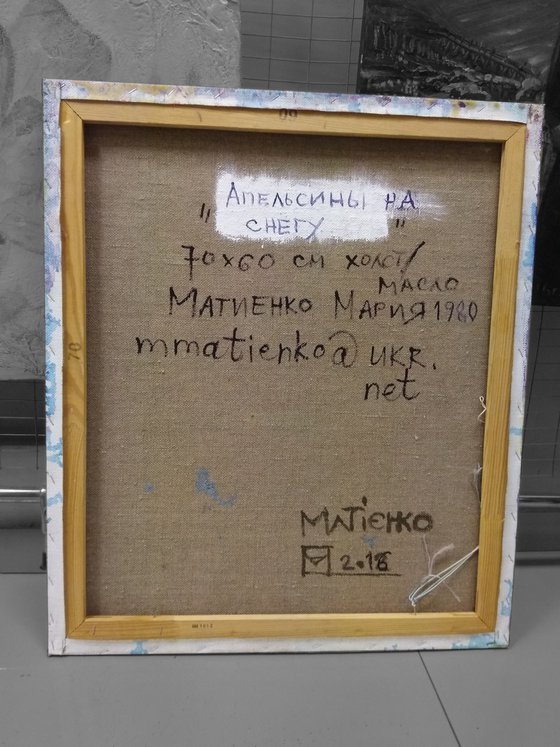 "Апельсины на
снегу"
70х60 см холст/
масло
Матиенко Мария 1980
mmatienko@ukr.
net
Матієнко
2.18
70